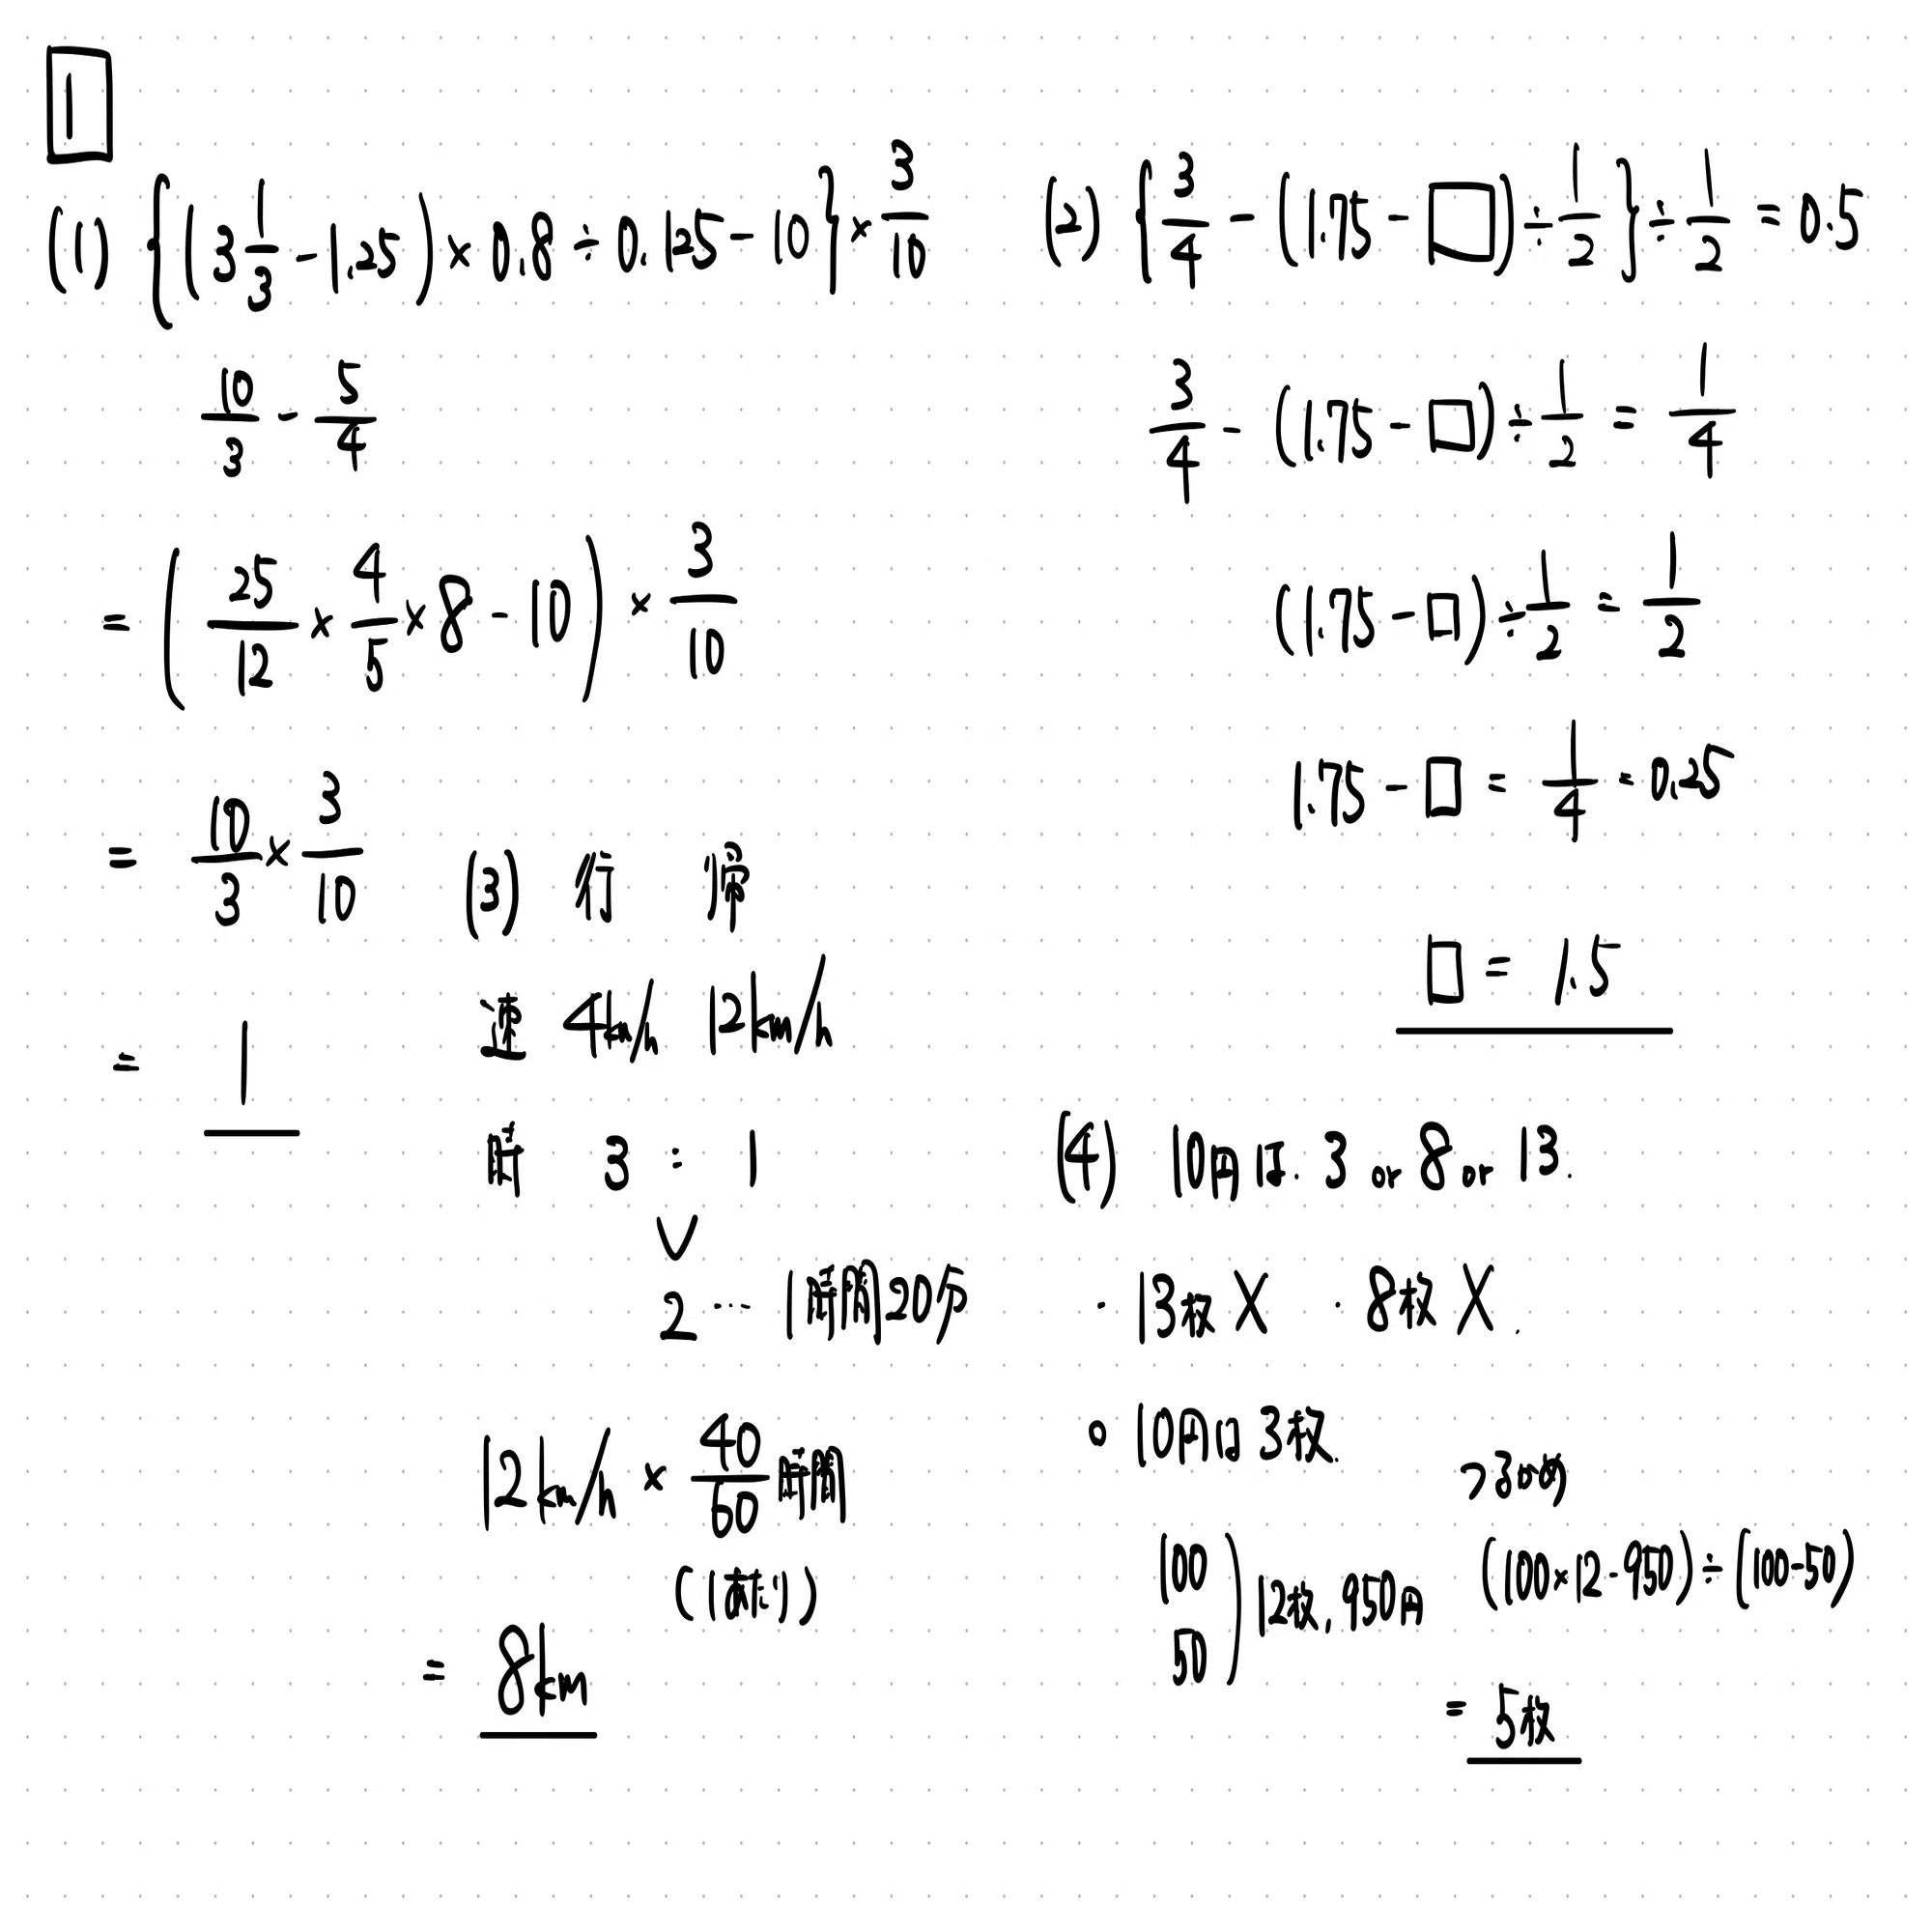 1
(1) {(3 1/3 - 1.25) × 0.8 ÷ 0.125 - 10} × 3/10
10/3 - 5/4
= (25/12 × 4/5 × 8 - 10) × 3/10
= 10/3 × 3/10
= 1
(2) {3/4 - (1.75 - □) ÷ 1/2} ÷ 1/2 = 0.5
3/4 - (1.75 - □) ÷ 1/2 = 1/4
(1.75 - □) ÷ 1/2 = 1/2
1.75 - □ = 1/4 = 0.25
□ = 1.5
(3) 行 帰
速 4km/h 12km/h
時 3 : 1
2 … 1時間20分
12km/h × 40/60 時間
(1あたり)
= 8km
(4) 10円は. 3 or 8 or 13.
・13枚 X ・8枚 X.
○ 10円は 3枚.
100
50 ) 12枚, 950円
つるかめ
(100×12-950)÷(100-50)
= 5枚